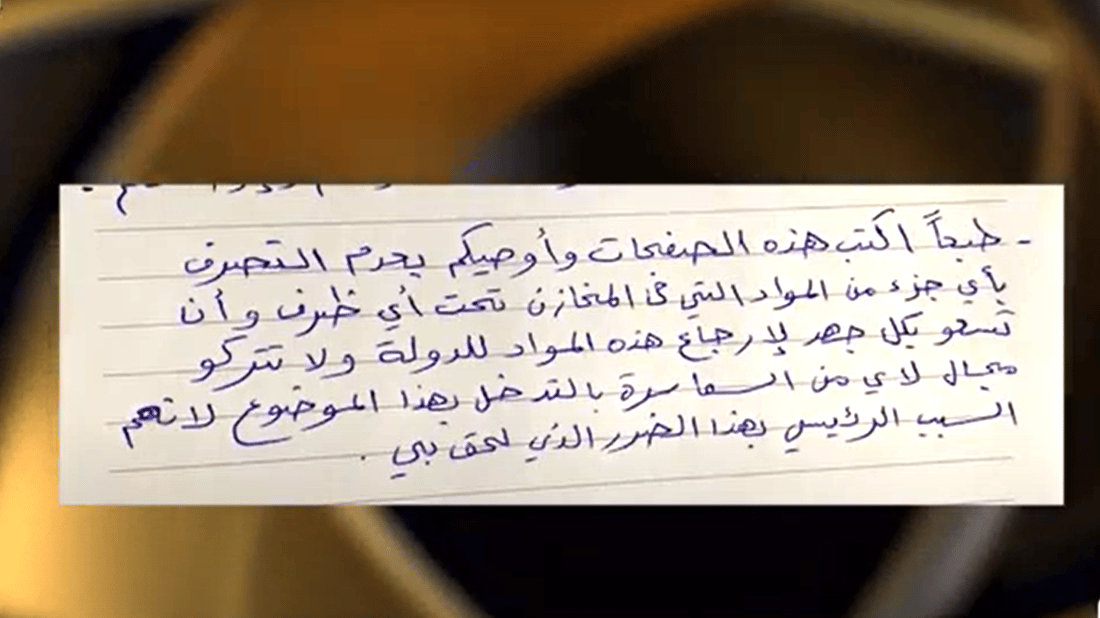 - طبعاً اكتب هذه الصفحات وأوصيكم بعدم التصرف
بأي جزء من المواد التي في المخازن تحت أي ظرف وأن
تسعو بكل جهد لإرجاع هذه المواد للدولة ولا تتركو
مجال لاي من السماسرة بالتدخل بهذا الموضوع لانهم
السبب الرئيسي بهذا الضرر الذي لحق بي .